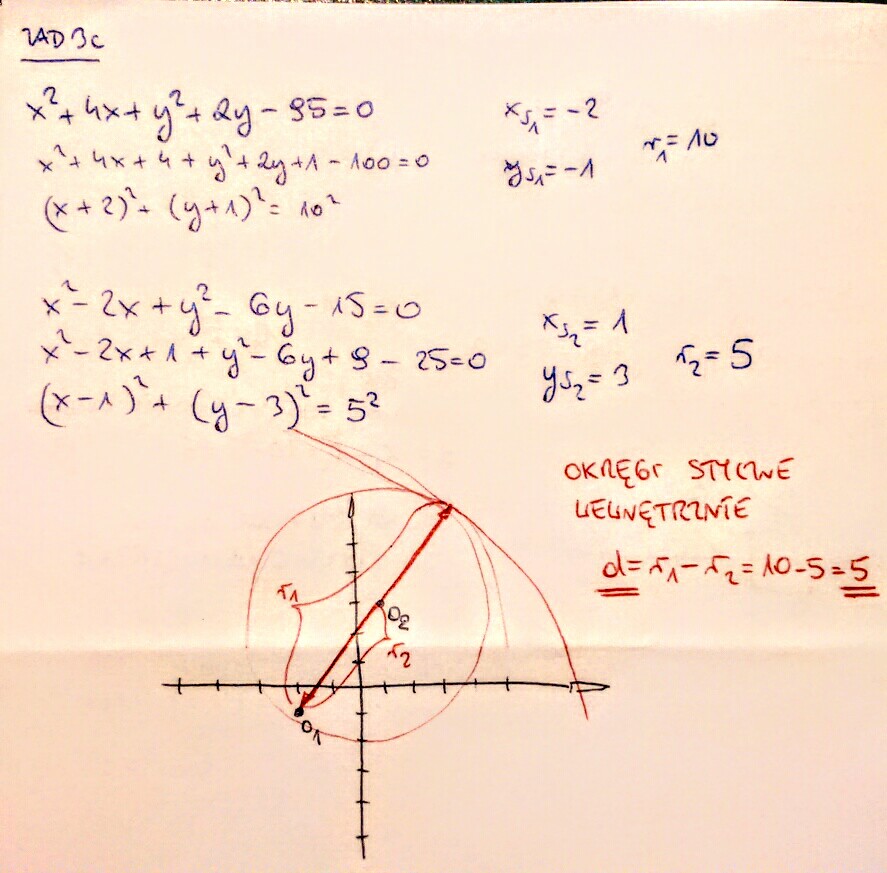 ZAD 3c
x² + 4x + y² + 2y - 95 = 0
x² + 4x + 4 + y² + 2y + 1 - 100 = 0
(x + 2)² + (y + 1)² = 10²
x_{S_1} = -2
y_{S_1} = -1
r_1 = 10
x² - 2x + y² - 6y - 15 = 0
x² - 2x + 1 + y² - 6y + 9 - 25 = 0
(x - 1)² + (y - 3)² = 5²
x_{S_2} = 1
y_{S_2} = 3
r_2 = 5
OKRĘGI STYCZNE
WEWNĘTRZNIE
d = r_1 - r_2 = 10 - 5 = 5
r_1
O_2
r_2
O_1